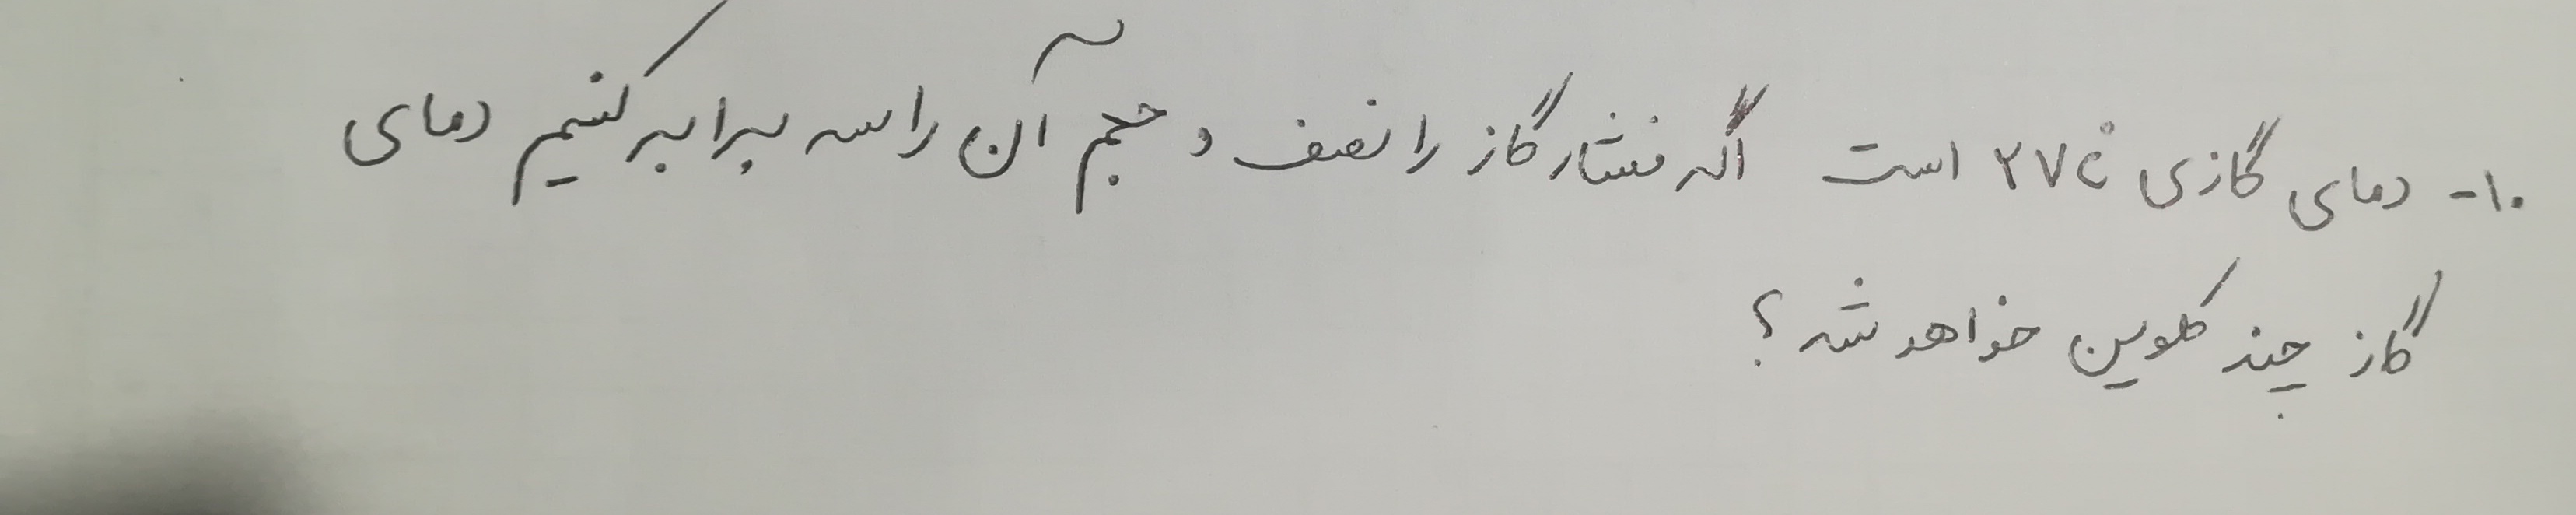 ۱۰- دمای گازی ۲۷°C است اگر فشار گاز را نصف و حجم آن را سه برابر کنیم دمای
گاز چند کلوین خواهد شد؟